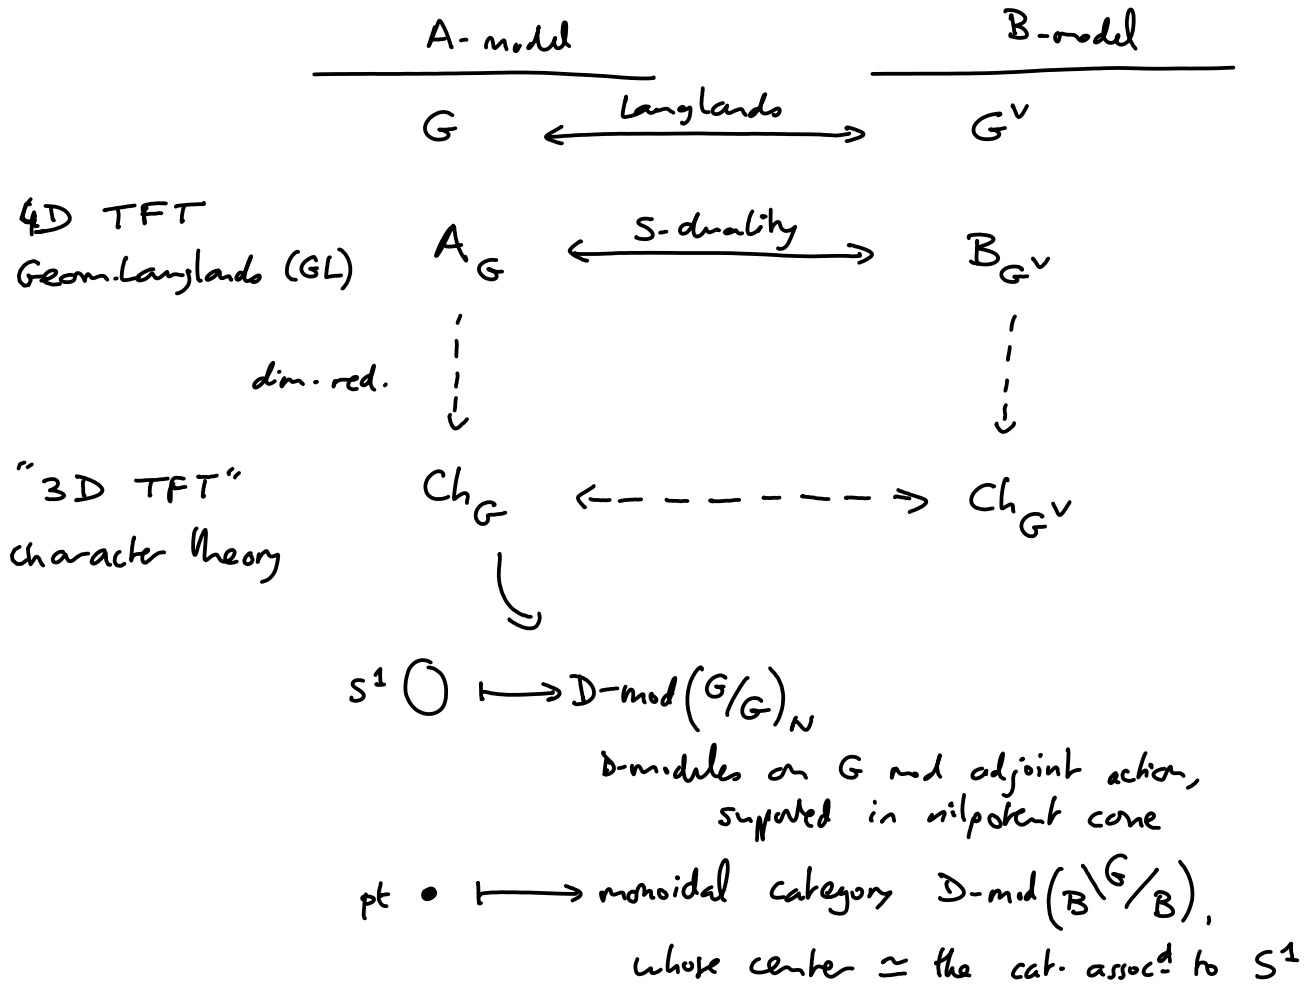 A-model B-model
G Langlands G^∨
4D TFT
Geom.Langlands (GL) A_G S-duality B_G^∨
dim. red.
"3D TFT" Ch_G Ch_G^∨
character theory
S^1 ↦ D-mod(G/G)_N
D-modules on G mod adjoint action,
supported in nilpotent cone
pt • ↦ monoidal category D-mod(B\G/B),
whose center ≃ the cat. assoc^d to S^1